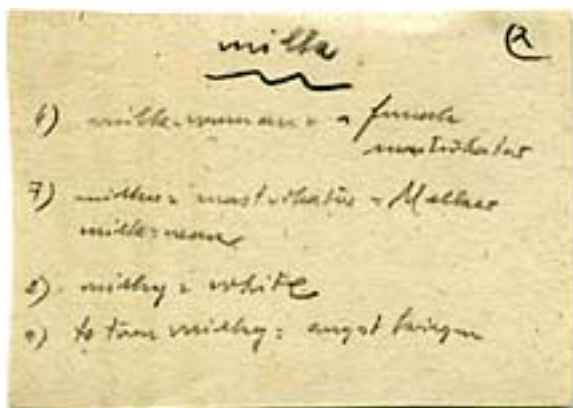 milk 2
6) milk-woman = a female
masturbator
7) milker = masturbator = Melker
milk-man
8) milky = white
9) to turn milky = angst kriegen